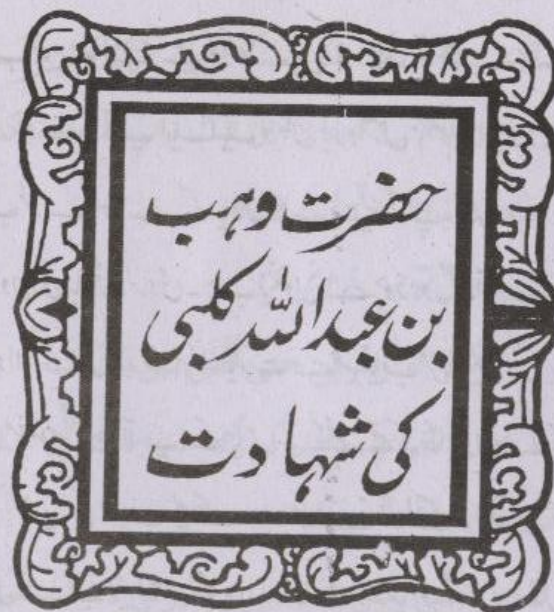 حضرت وہب
بن عبداللہ کلبی
کی شہادت